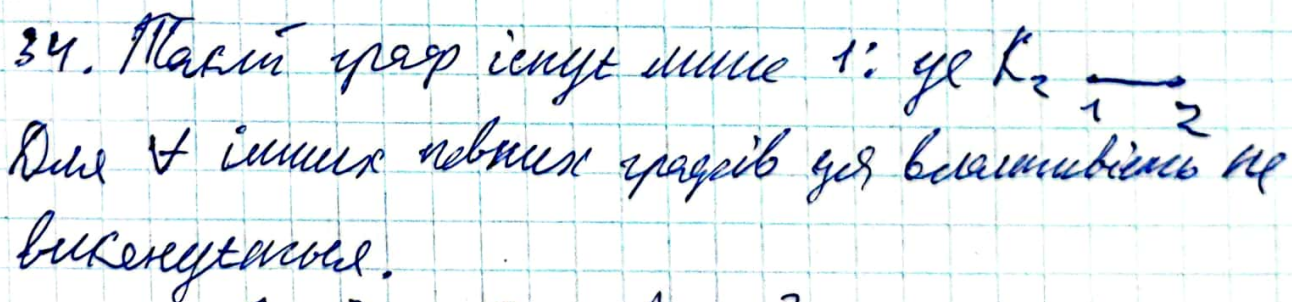 34. Такий граф існує лише 1: це K₂ 1 2
Для ∀ інших повних графів ця властивість не
виконується.